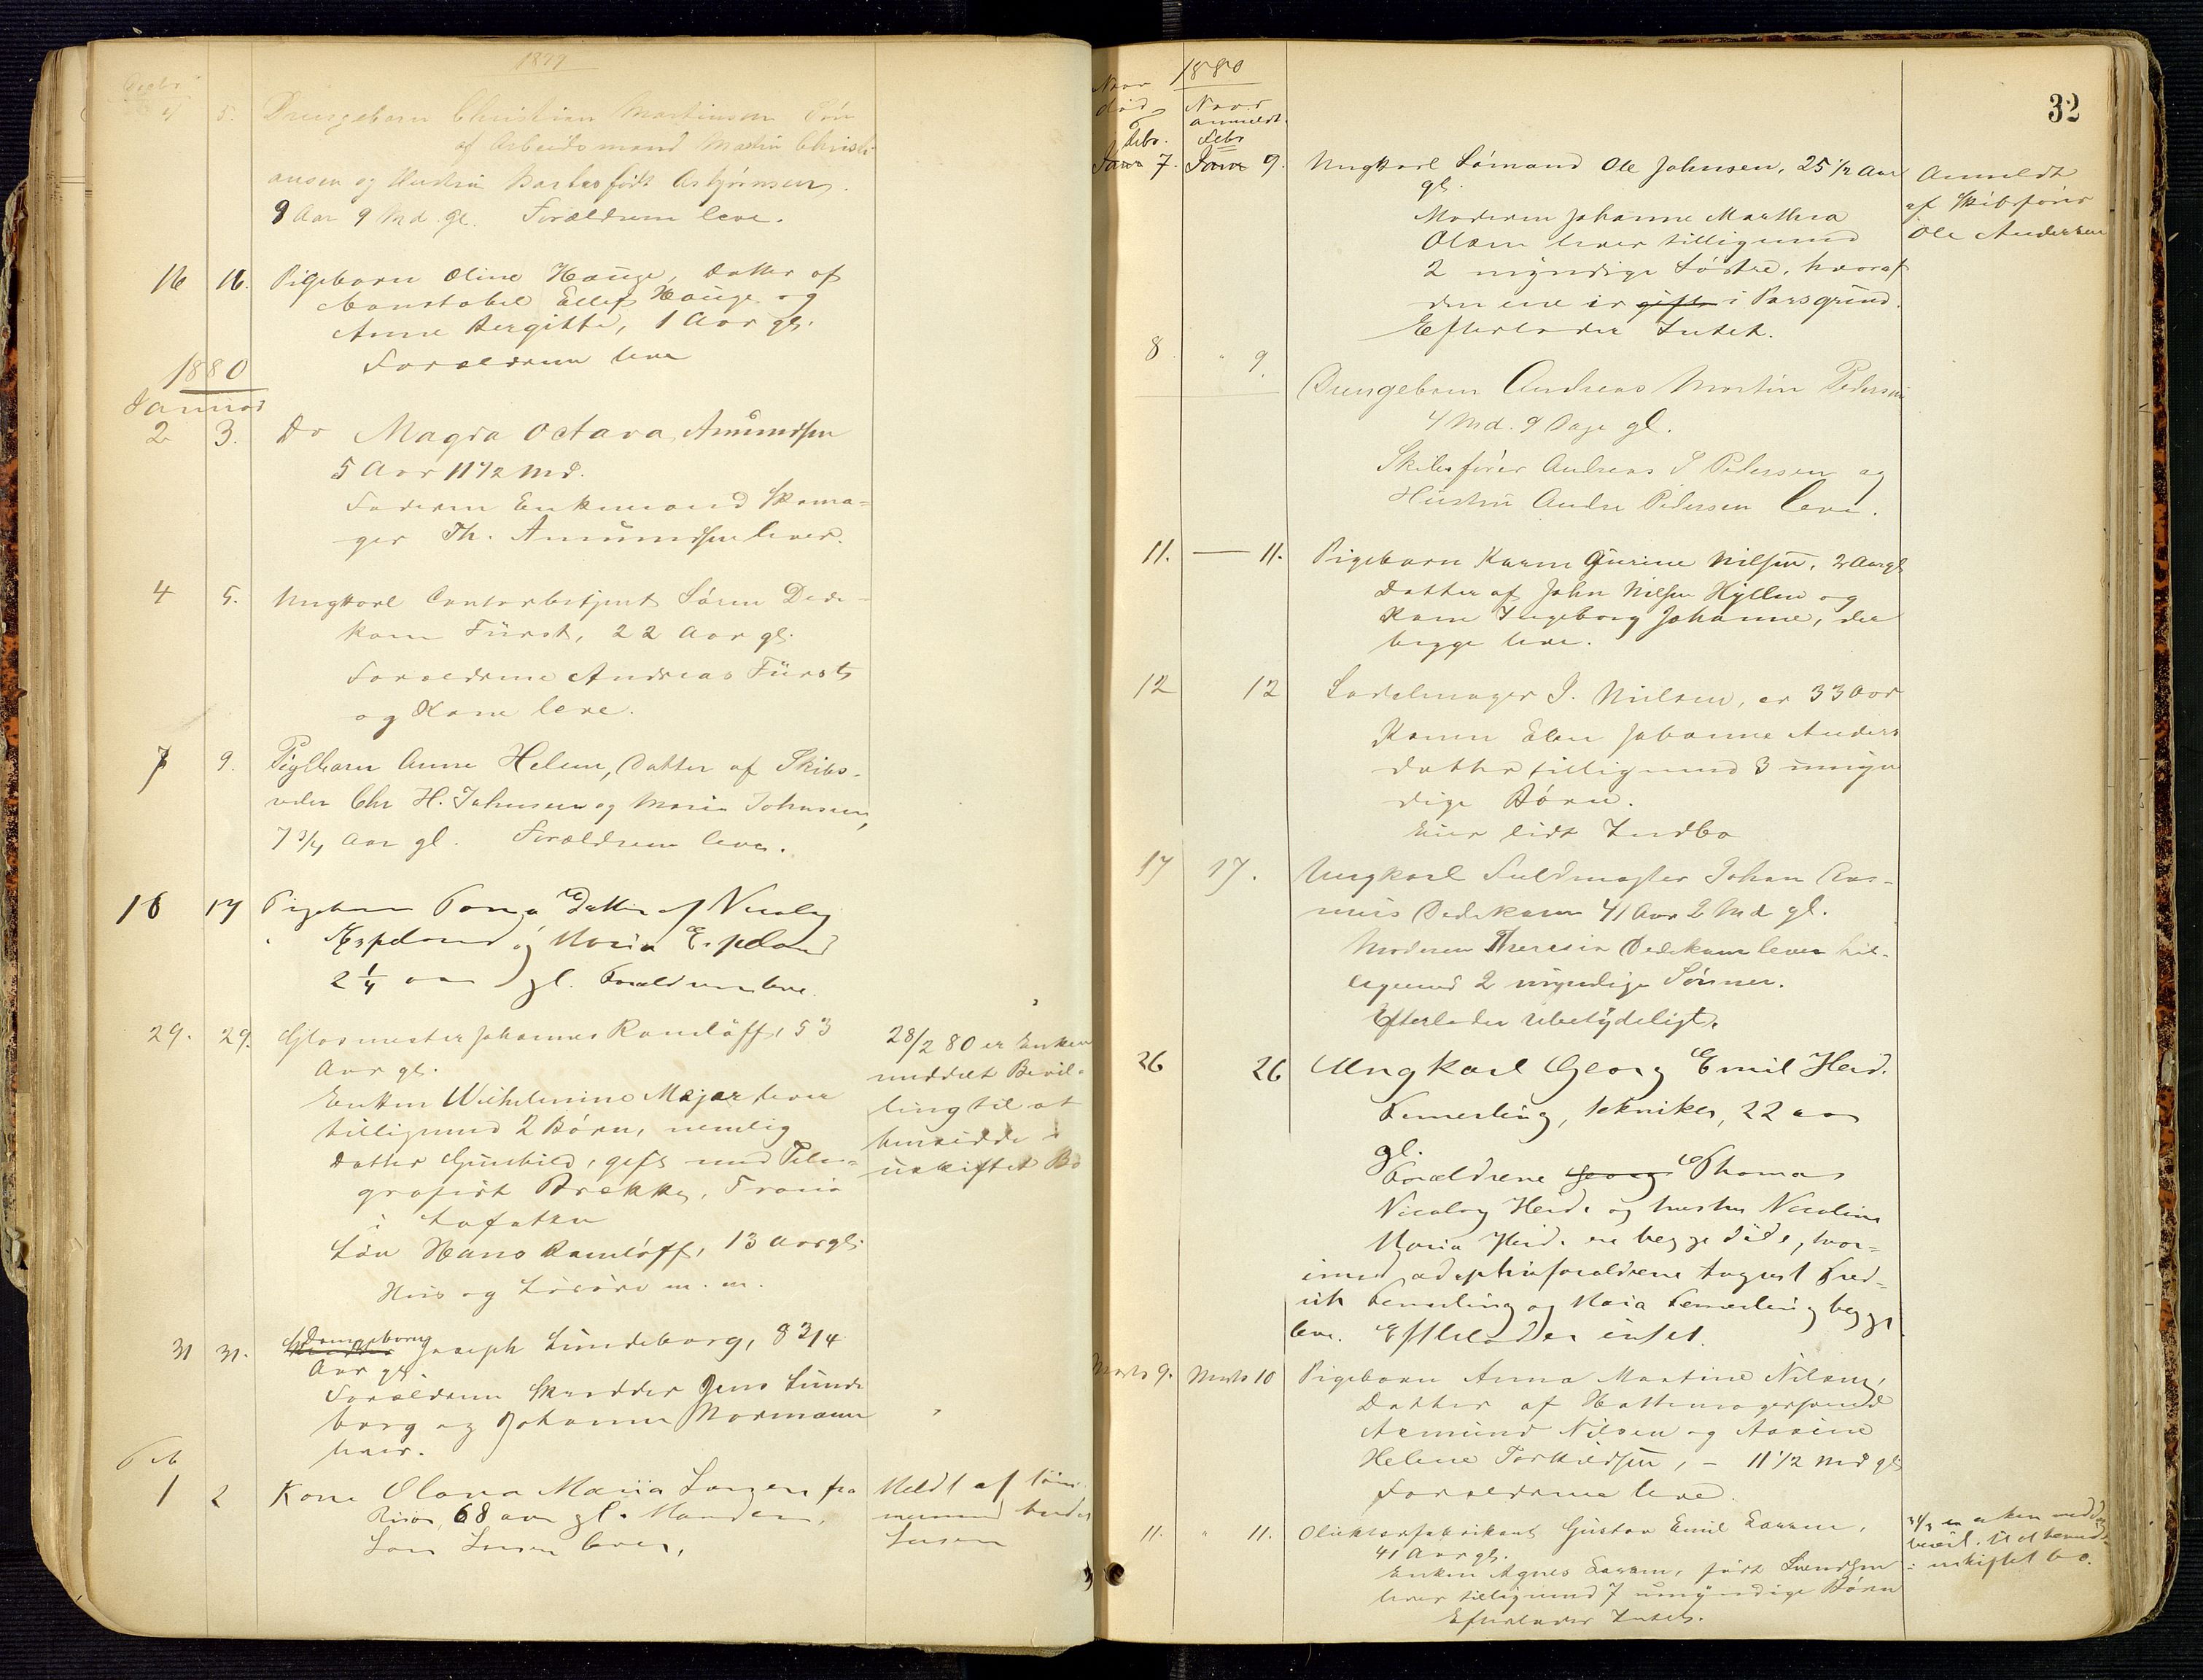 1879
4 5. Drengebarn Christian Martinsen Søn
af Arbeidsmand Martin Christi-
ansen og Hustru født Asbjørnsen.
9 Aar 9 Md. gl. Forældrene leve.
16 16. Pigebarn Oline Hauge, Datter af
Constabel Ellef Hauge og
Anne Bergitte, 1 Aar gl.
Forældrene leve
1880
Januar
2 3. Do Magda Octava Amundsen
5 Aar 11 1/2 Md.
Faderen Enkemand Skoma-
ger Th. Amundsen lever.
4 5. Ungkarl Contorbetjent Søren Dede-
kam Fürst, 22 Aar gl.
Forældrene Andreas Fürst
og Kone leve.
7 9. Pigebarn Anne Helene, Datter af Skibs-
reder Chr H. Johnsen og Maria Johnsen,
7 3/4 Aar gl. Forældrene leve.
16 17 Pigebarn Datter af Nicolay
Espeland og Maria Espeland
2 1/4 aar gl. Forældrene leve.
29. 29. Glasmester Johannes Ramløff, 53
Aar gl.
Enken Wilhelmine Majer lever
tilligemed 2 Børn, nemlig
Datter Gunhild, gift med Tele-
grafist Brekke,
i Lofoten
Søn Hans Ramløff, 13 Aar gl.
Hus og Løsøre m. m.
28/2 80 er Enken
meddelt Bevil-
ling til at
hensidde i
uskiftet Bo
31 31. Drengebarn Joseph Lundeborg, 8 3/4
Aar gl.
Forældrene Skrædder Jens Lunde
borg og Johanne Normann
lever.
Feb
1 2 Kone Olava Maria Larsen fra
Risør, 68 aar gl. Manden,
Lars Larsen lever,
Meldt af

Larsen
32
1880
Naar
død
Naar
anmeldt.
Febr. Febr
Janr 7. Janr 9. Ungkarl Sømand Ole Johnsen, 25 1/2 Aar
gl.
Moderen Johanne Marthea
Olsen lever tilligemed
2 myndige Søstre, hvoraf
den ene er gift i Porsgrund.
Efterlader Intet.
Anmeldt
af Skibsfører
Ole Andersen
8 " 9. Drengebarn Andreas Martin Pedersen
4 Md. 9 Dage gl.
Skibsfører Andreas P Pedersen og
Hustru Andrea Pedersen leve.
11. — 11. Pigebarn Karen Gurine Nilsen, 2 Aar gl
Datter af John Nilsen Hyllen og
Kone Ingeborg Johanne, der
begge leve.
12 12 Sadelmager J. Nielsen, er 33 Aar
Konen Elen Johanne Anders
datter tilligemed 3 umyn
dige Børn.
Eier lidt Indbo
17 17. Ungkarl Fuldmægtig Johan Ras-
mus Dedekam 41 Aar 2 Md gl.
Moderen Theresia Dedekam lever til-
ligemed 2 myndige Sønner.
Efterlader ubetydeligt.
26 26 Ungkarl Georg Emil Heid.
Femerling, tekniker, 22 aar
gl.
Forældrene Georg Thomas
Nicolay Heid. og hustru Nicoline
Maria Heid. ere begge døde, hvor-
imod adoptivforældrene August Fred-
rik Femerling og Maria Femerling begge
leve. Efterlader intet.
Marts 9. Marts 10 Pigebarn Anna Martine Nilsen,
Datter af Hattemagersvend
Asmund Nilsen og Aasine
Helene Torkildsen, - 11 1/2 Md gl
Forældrene leve
11. " 11. Gustav Emil Larsen,
41 Aar gl.
Enken Agnes Larsen, født Svendsen
lever tilligemed 7 umyndige Børn
Efterlader Intet.
er enken meddelt
bevil. til at hensid.
i uskiftet bo.